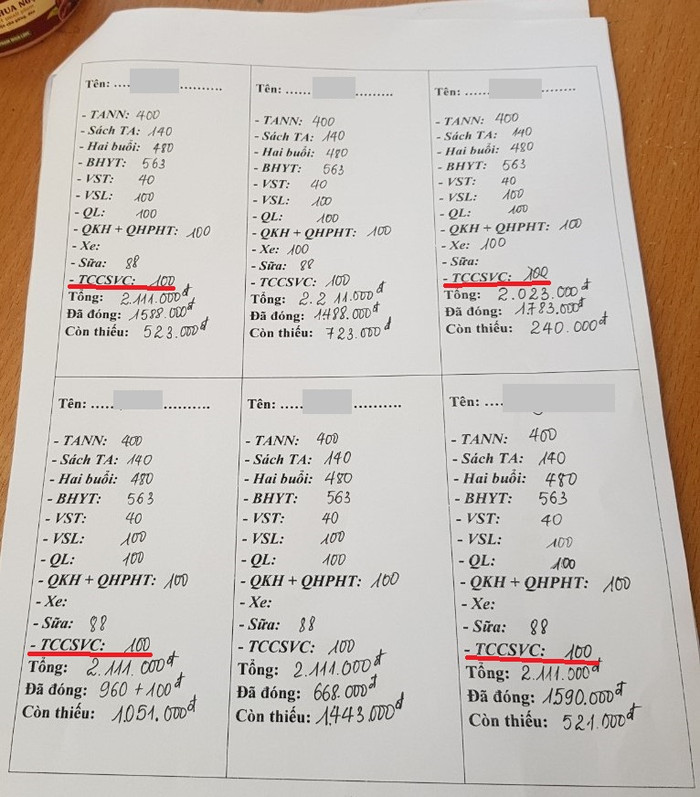 Tên: .... ..........
- TANN: 400
- Sách TA: 140
- Hai buổi: 480
- BHYT: 563
- VST: 40
- VSL: 100
- QL: 100
- QKH + QHPHT: 100
- Xe:
- Sữa: 88
- TCCSVC: 100
Tổng: 2.111.000đ
Đã đóng: 1588.000đ
Còn thiếu: 523.000đ
Tên: ...... .........
- TANN: 400
- Sách TA: 140
- Hai buổi: 480
- BHYT: 563
- VST: 40
- VSL: 100
- QL: 100
- QKH + QHPHT: 100
- Xe: 100
- Sữa: 88
- TCCSVC: 100
Tổng: 2.211.000đ
Đã đóng: 1488.000đ
Còn thiếu: 723.000đ
Tên: .... ........
- TANN: 400
- Sách TA: 140
- Hai buổi: 480
- BHYT: 563
- VST: 40
- VSL: 100
- QL: 100
- QKH + QHPHT: 100
- Xe: 100
- Sữa:
- TCCSVC: 100
Tổng: 2.023.000đ
Đã đóng: 1783.000đ
Còn thiếu: 240.000đ
Tên: ..... ..........
- TANN: 400
- Sách TA: 140
- Hai buổi: 480
- BHYT: 563
- VST: 40
- VSL: 100
- QL: 100
- QKH + QHPHT: 100
- Xe:
- Sữa: 88
- TCCSVC: 100
Tổng: 2.111.000đ
Đã đóng: 960 + 100đ
Còn thiếu: 1.051.000đ
Tên: ..... ..........
- TANN: 400
- Sách TA: 140
- Hai buổi: 480
- BHYT: 563
- VST: 40
- VSL: 100
- QL: 100
- QKH + QHPHT: 100
- Xe:
- Sữa: 88
- TCCSVC: 100
Tổng: 2.111.000đ
Đã đóng: 668.000đ
Còn thiếu: 1.443.000đ
Tên: ....
- TANN: 400
- Sách TA: 140
- Hai buổi: 480
- BHYT: 563
- VST: 40
- VSL: 100
- QL: 100
- QKH + QHPHT: 100
- Xe:
- Sữa: 88
- TCCSVC: 100
Tổng: 2.111.000đ
Đã đóng: 1590.000đ
Còn thiếu: 521.000đ